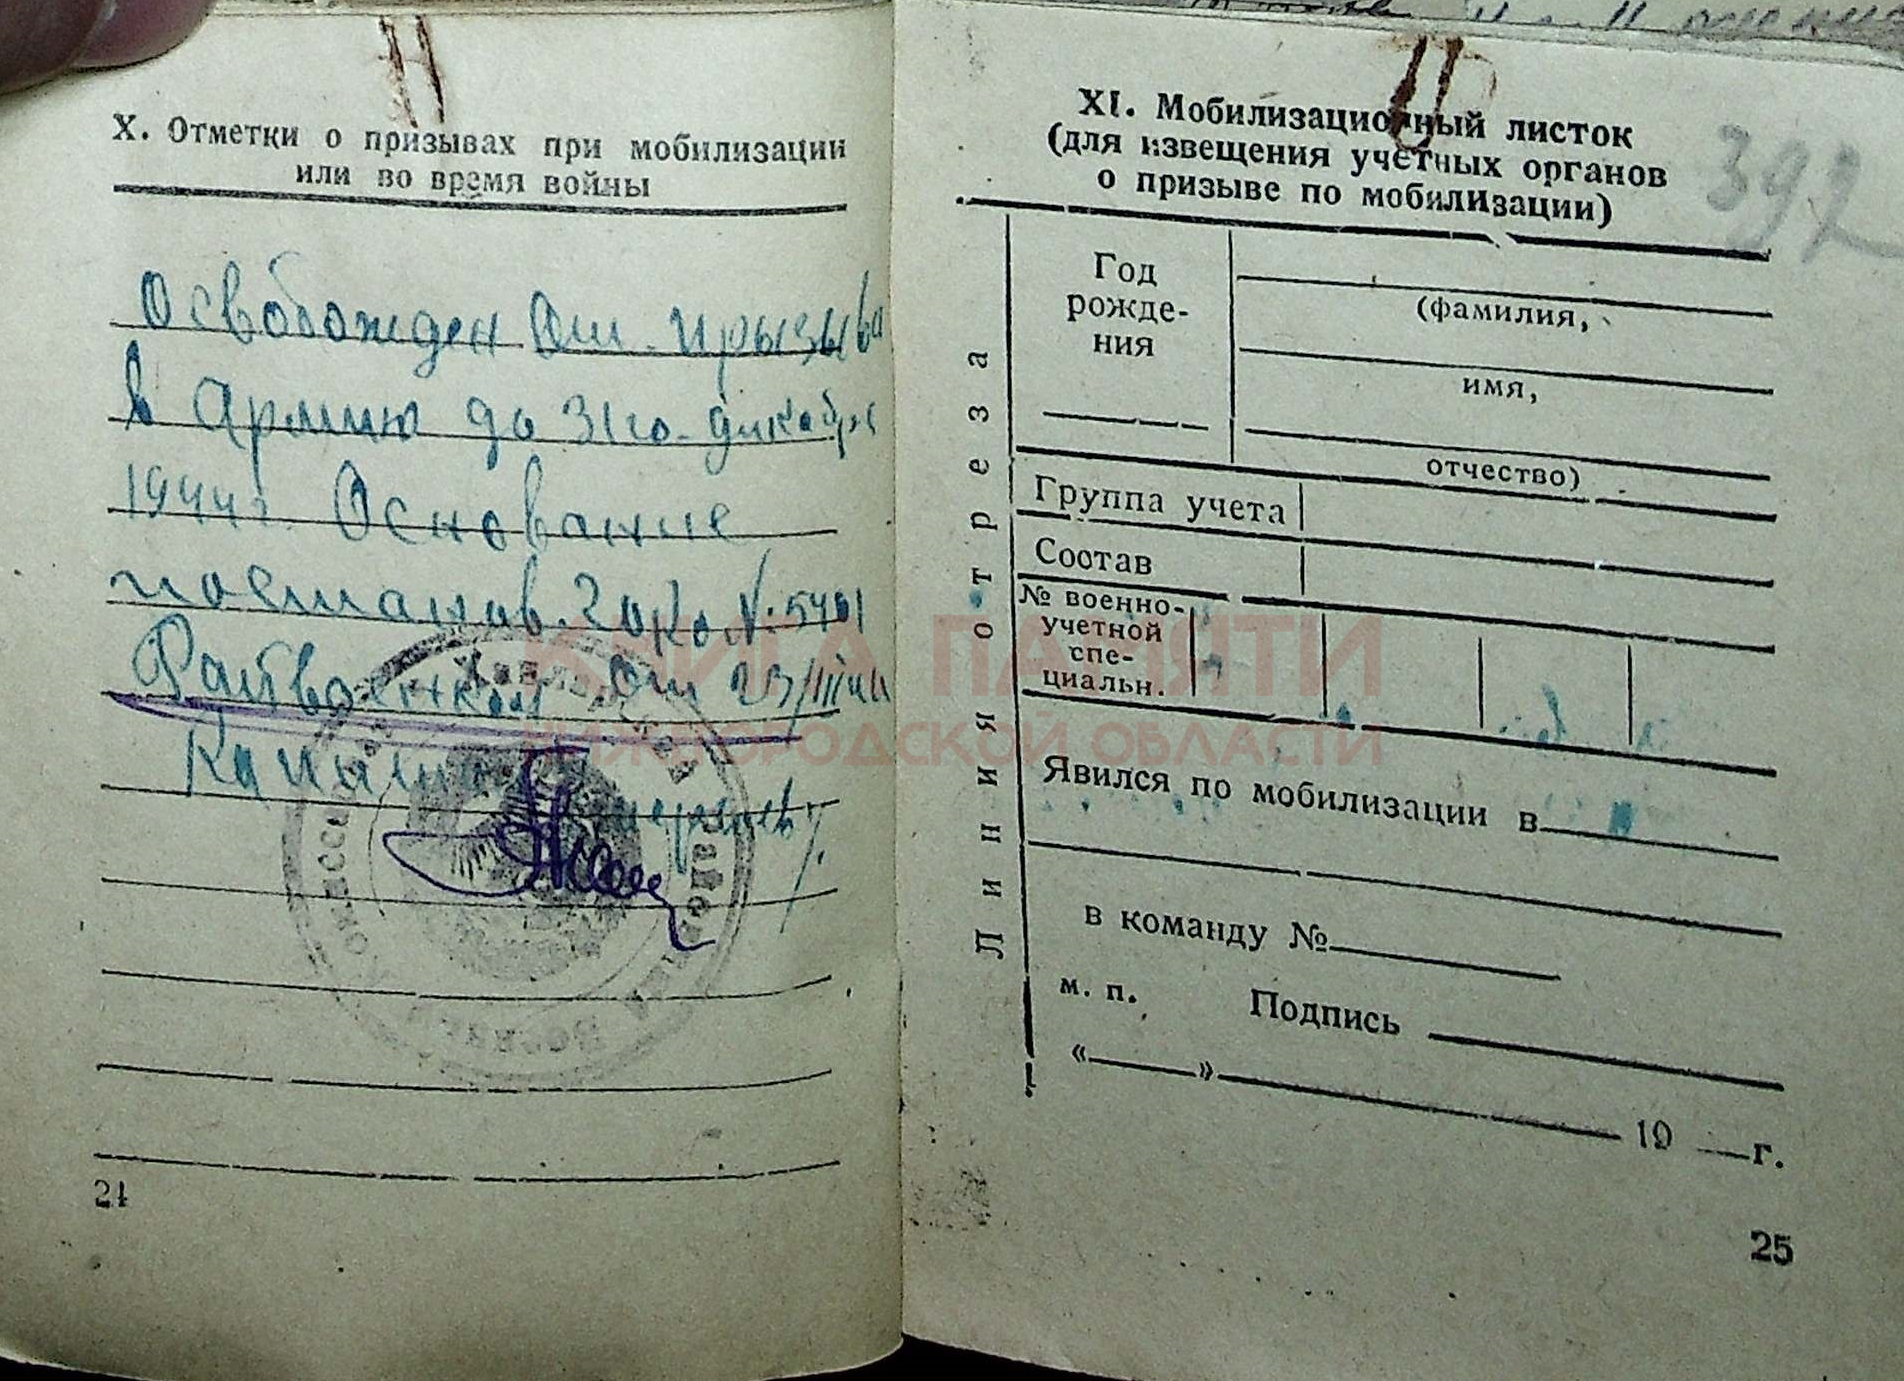 X. Отметки о призывах при мобилизации
или во время войны
Освобожден от призыва
в Армию до 31го декабря
1944 г. Основание
постанов. Гоко № 5401
Райвоенком От 23/III 44
Капитан
24
392
XI. Мобилизационный листок
(для извещения учетных органов
о призыве по мобилизации)
Линия отреза
Год
рожде-
ния
(фамилия,
имя,
отчество)
Группа учета
Состав
№ военно-
учетной
спе-
циальн.
Явился по мобилизации в
в команду №
м. п. Подпись
« » 19 г.
25
КНИГА ПАМЯТИ
НИЖЕГОРОДСКОЙ ОБЛАСТИ